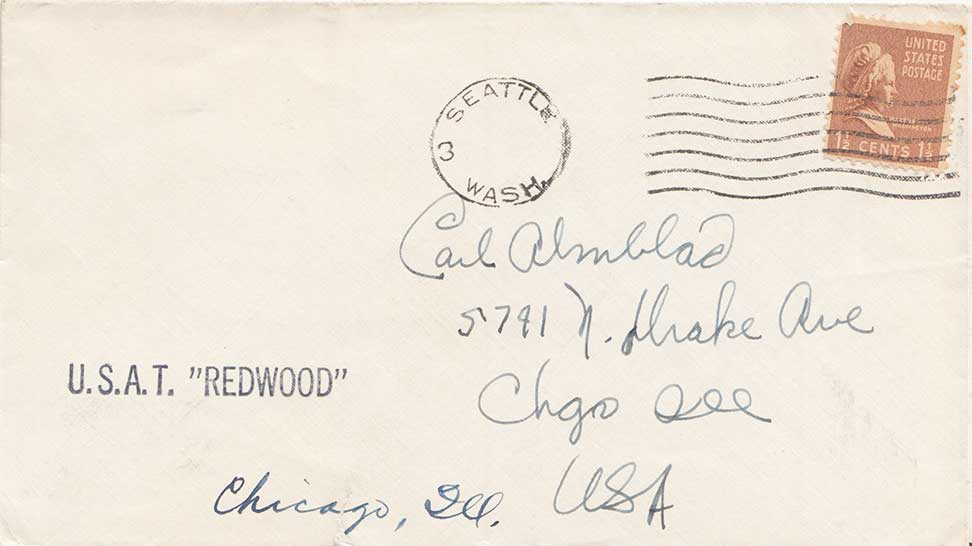 UNITED
STATES
POSTAGE
WASHINGTON
1½ CENTS 1½
SEATTLE
3
WASH.
Carl Almblad
5741 N. Drake Ave
Chgo Ill
U.S.A.T. "REDWOOD"
USA
Chicago, Ill.